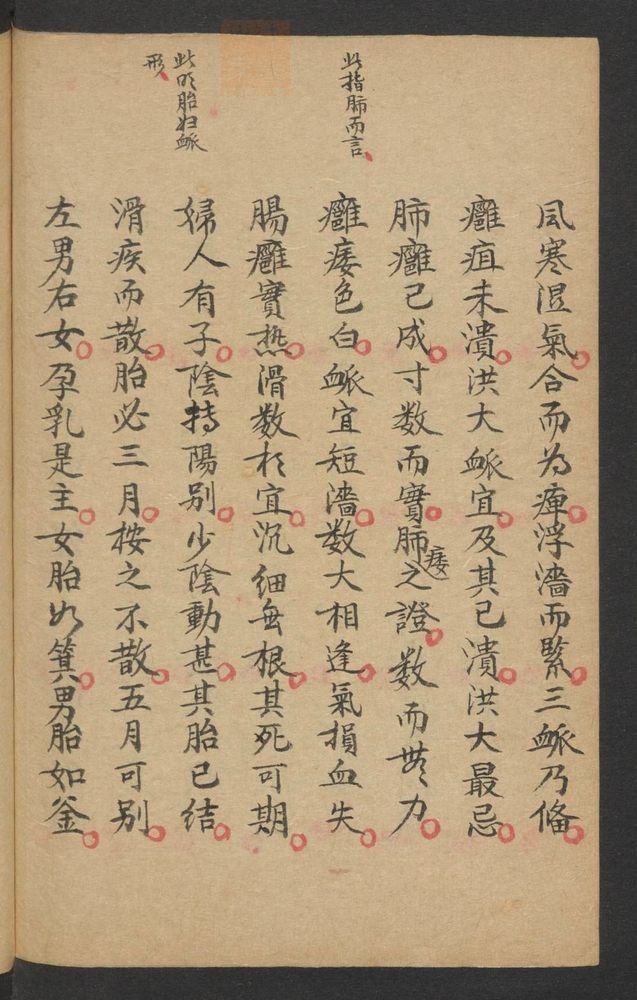 此指肺而言
此明胎妇脈
形
風寒湿氣合而為痺浮濇而緊三脈乃俻
癰疽未潰洪大脈宜及其已潰洪大最忌
肺癰已成寸数而實肺痿之證数而無力
癰痿色白脈宜短濇数大相逢氣損血失
腸癰實热滑数相宜沉细無根其死可期
婦人有子陰搏陽別少陰動甚其胎已结
滑疾而散胎必三月按之不散五月可别
左男右女孕乳是主女胎如箕男胎如釜